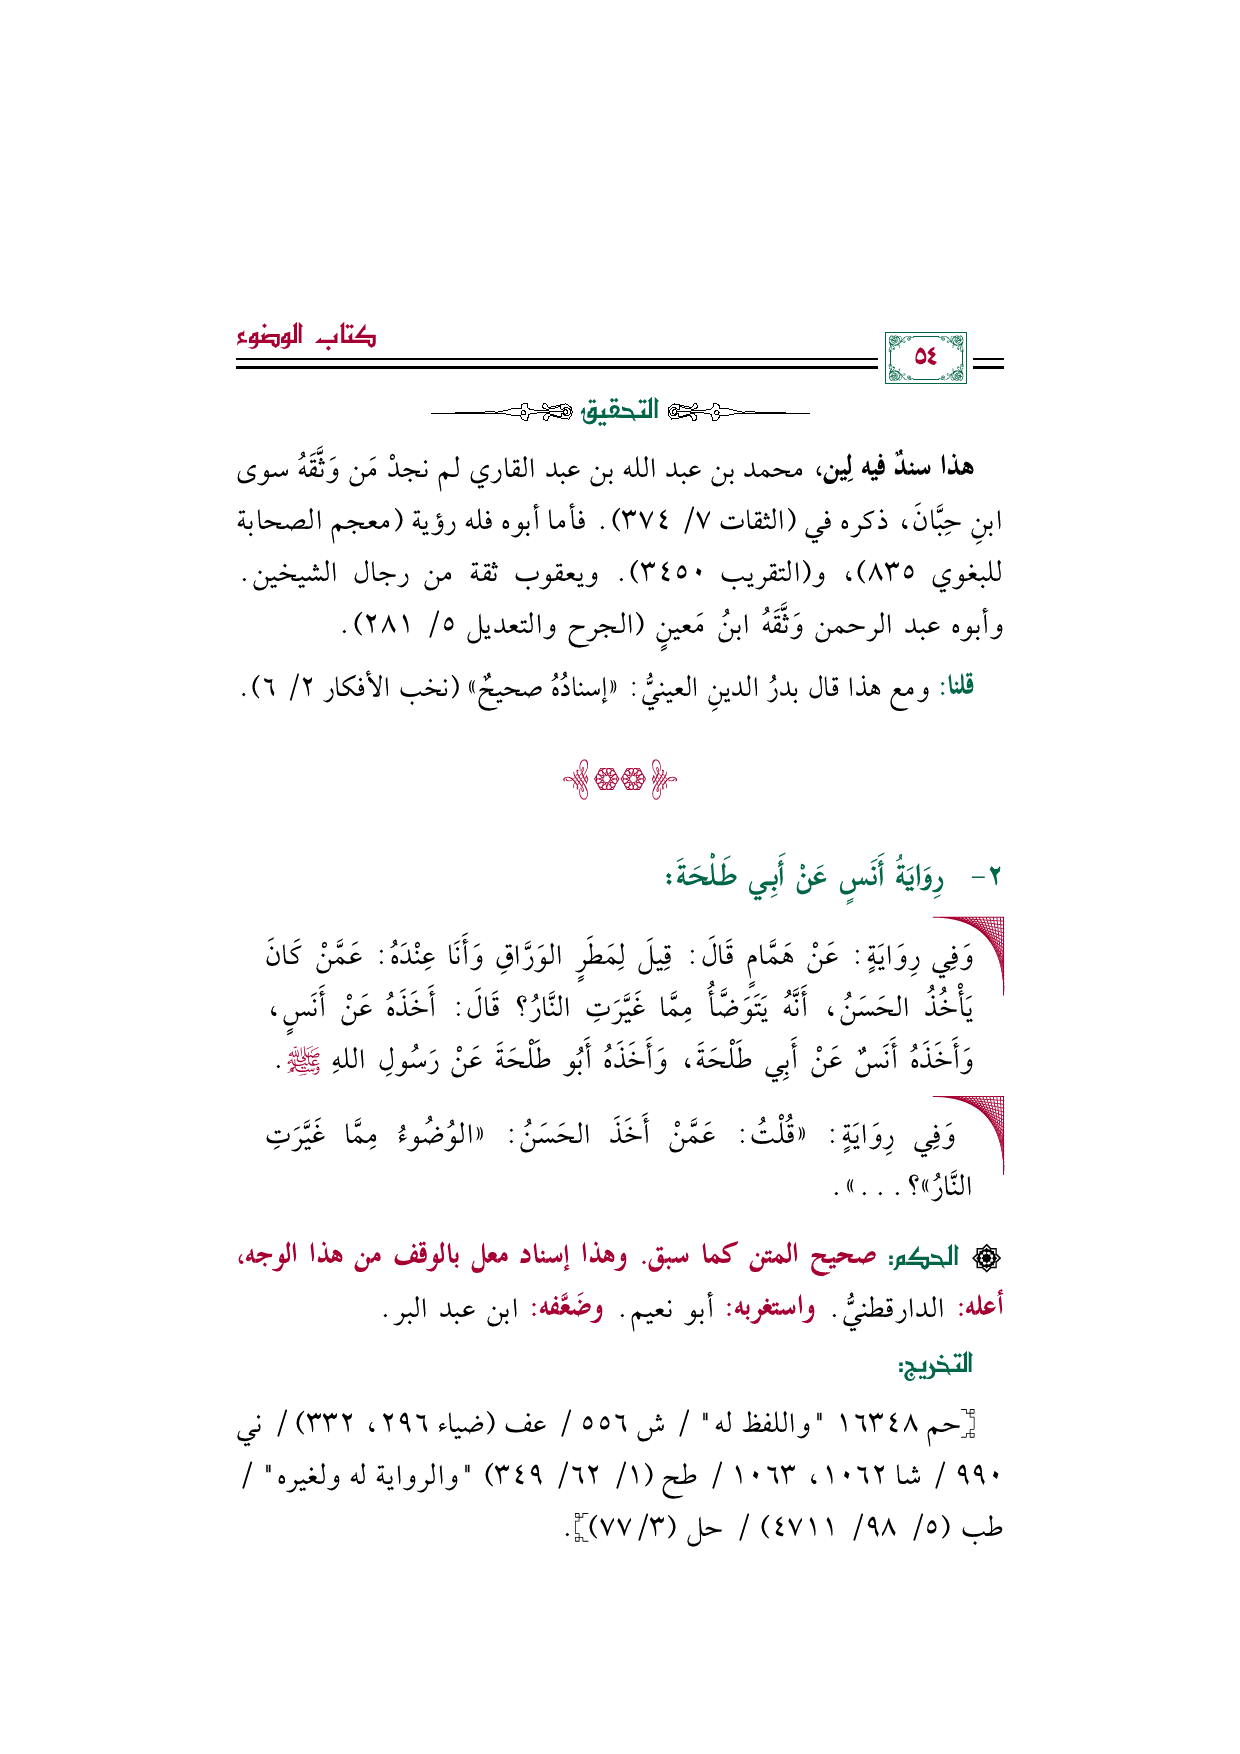 كتاب الوضوء
٥٤
التحقيق
هذا سندٌ فيه لِين، محمد بن عبد الله بن عبد القاري لم نجدْ مَن وَثَّقَهُ سوى
ابنِ حِبَّانَ، ذكره في (الثقات ٧/ ٣٧٤). فأما أبوه فله رؤية (معجم الصحابة
للبغوي ٨٣٥)، و(التقريب ٣٤٥٠). ويعقوب ثقة من رجال الشيخين.
وأبوه عبد الرحمن وَثَّقَهُ ابنُ مَعينٍ (الجرح والتعديل ٥/ ٢٨١).
قلنا: ومع هذا قال بدرُ الدينِ العينيُّ: «إسنادُهُ صحيحٌ» (نخب الأفكار ٢/ ٦).
٢- رِوَايَةُ أَنَسٍ عَنْ أَبِي طَلْحَةَ:
وَفِي رِوَايَةٍ: عَنْ هَمَّامٍ قَالَ: قِيلَ لِمَطَرٍ الوَرَّاقِ وَأَنَا عِنْدَهُ: عَمَّنْ كَانَ
يَأْخُذُ الحَسَنُ، أَنَّهُ يَتَوَضَّأُ مِمَّا غَيَّرَتِ النَّارُ؟ قَالَ: أَخَذَهُ عَنْ أَنَسٍ،
وَأَخَذَهُ أَنَسٌ عَنْ أَبِي طَلْحَةَ، وَأَخَذَهُ أَبُو طَلْحَةَ عَنْ رَسُولِ اللهِ ﷺ.
وَفِي رِوَايَةٍ: «قُلْتُ: عَمَّنْ أَخَذَ الحَسَنُ: «الوُضُوءُ مِمَّا غَيَّرَتِ
النَّارُ»؟ . . .».
الحكم: صحيح المتن كما سبق. وهذا إسناد معل بالوقف من هذا الوجه،
أعله: الدارقطنيُّ. واستغربه: أبو نعيم. وضَعَّفه: ابن عبد البر.
التخريج:
[حم ١٦٣٤٨ "واللفظ له" / ش ٥٥٦ / عف (ضياء ٢٩٦، ٣٣٢) / ني
٩٩٠ / شا ١٠٦٢، ١٠٦٣ / طح (١/ ٦٢/ ٣٤٩) "والرواية له ولغيره" /
طب (٥/ ٩٨/ ٤٧١١) / حل (٣/ ٧٧)].